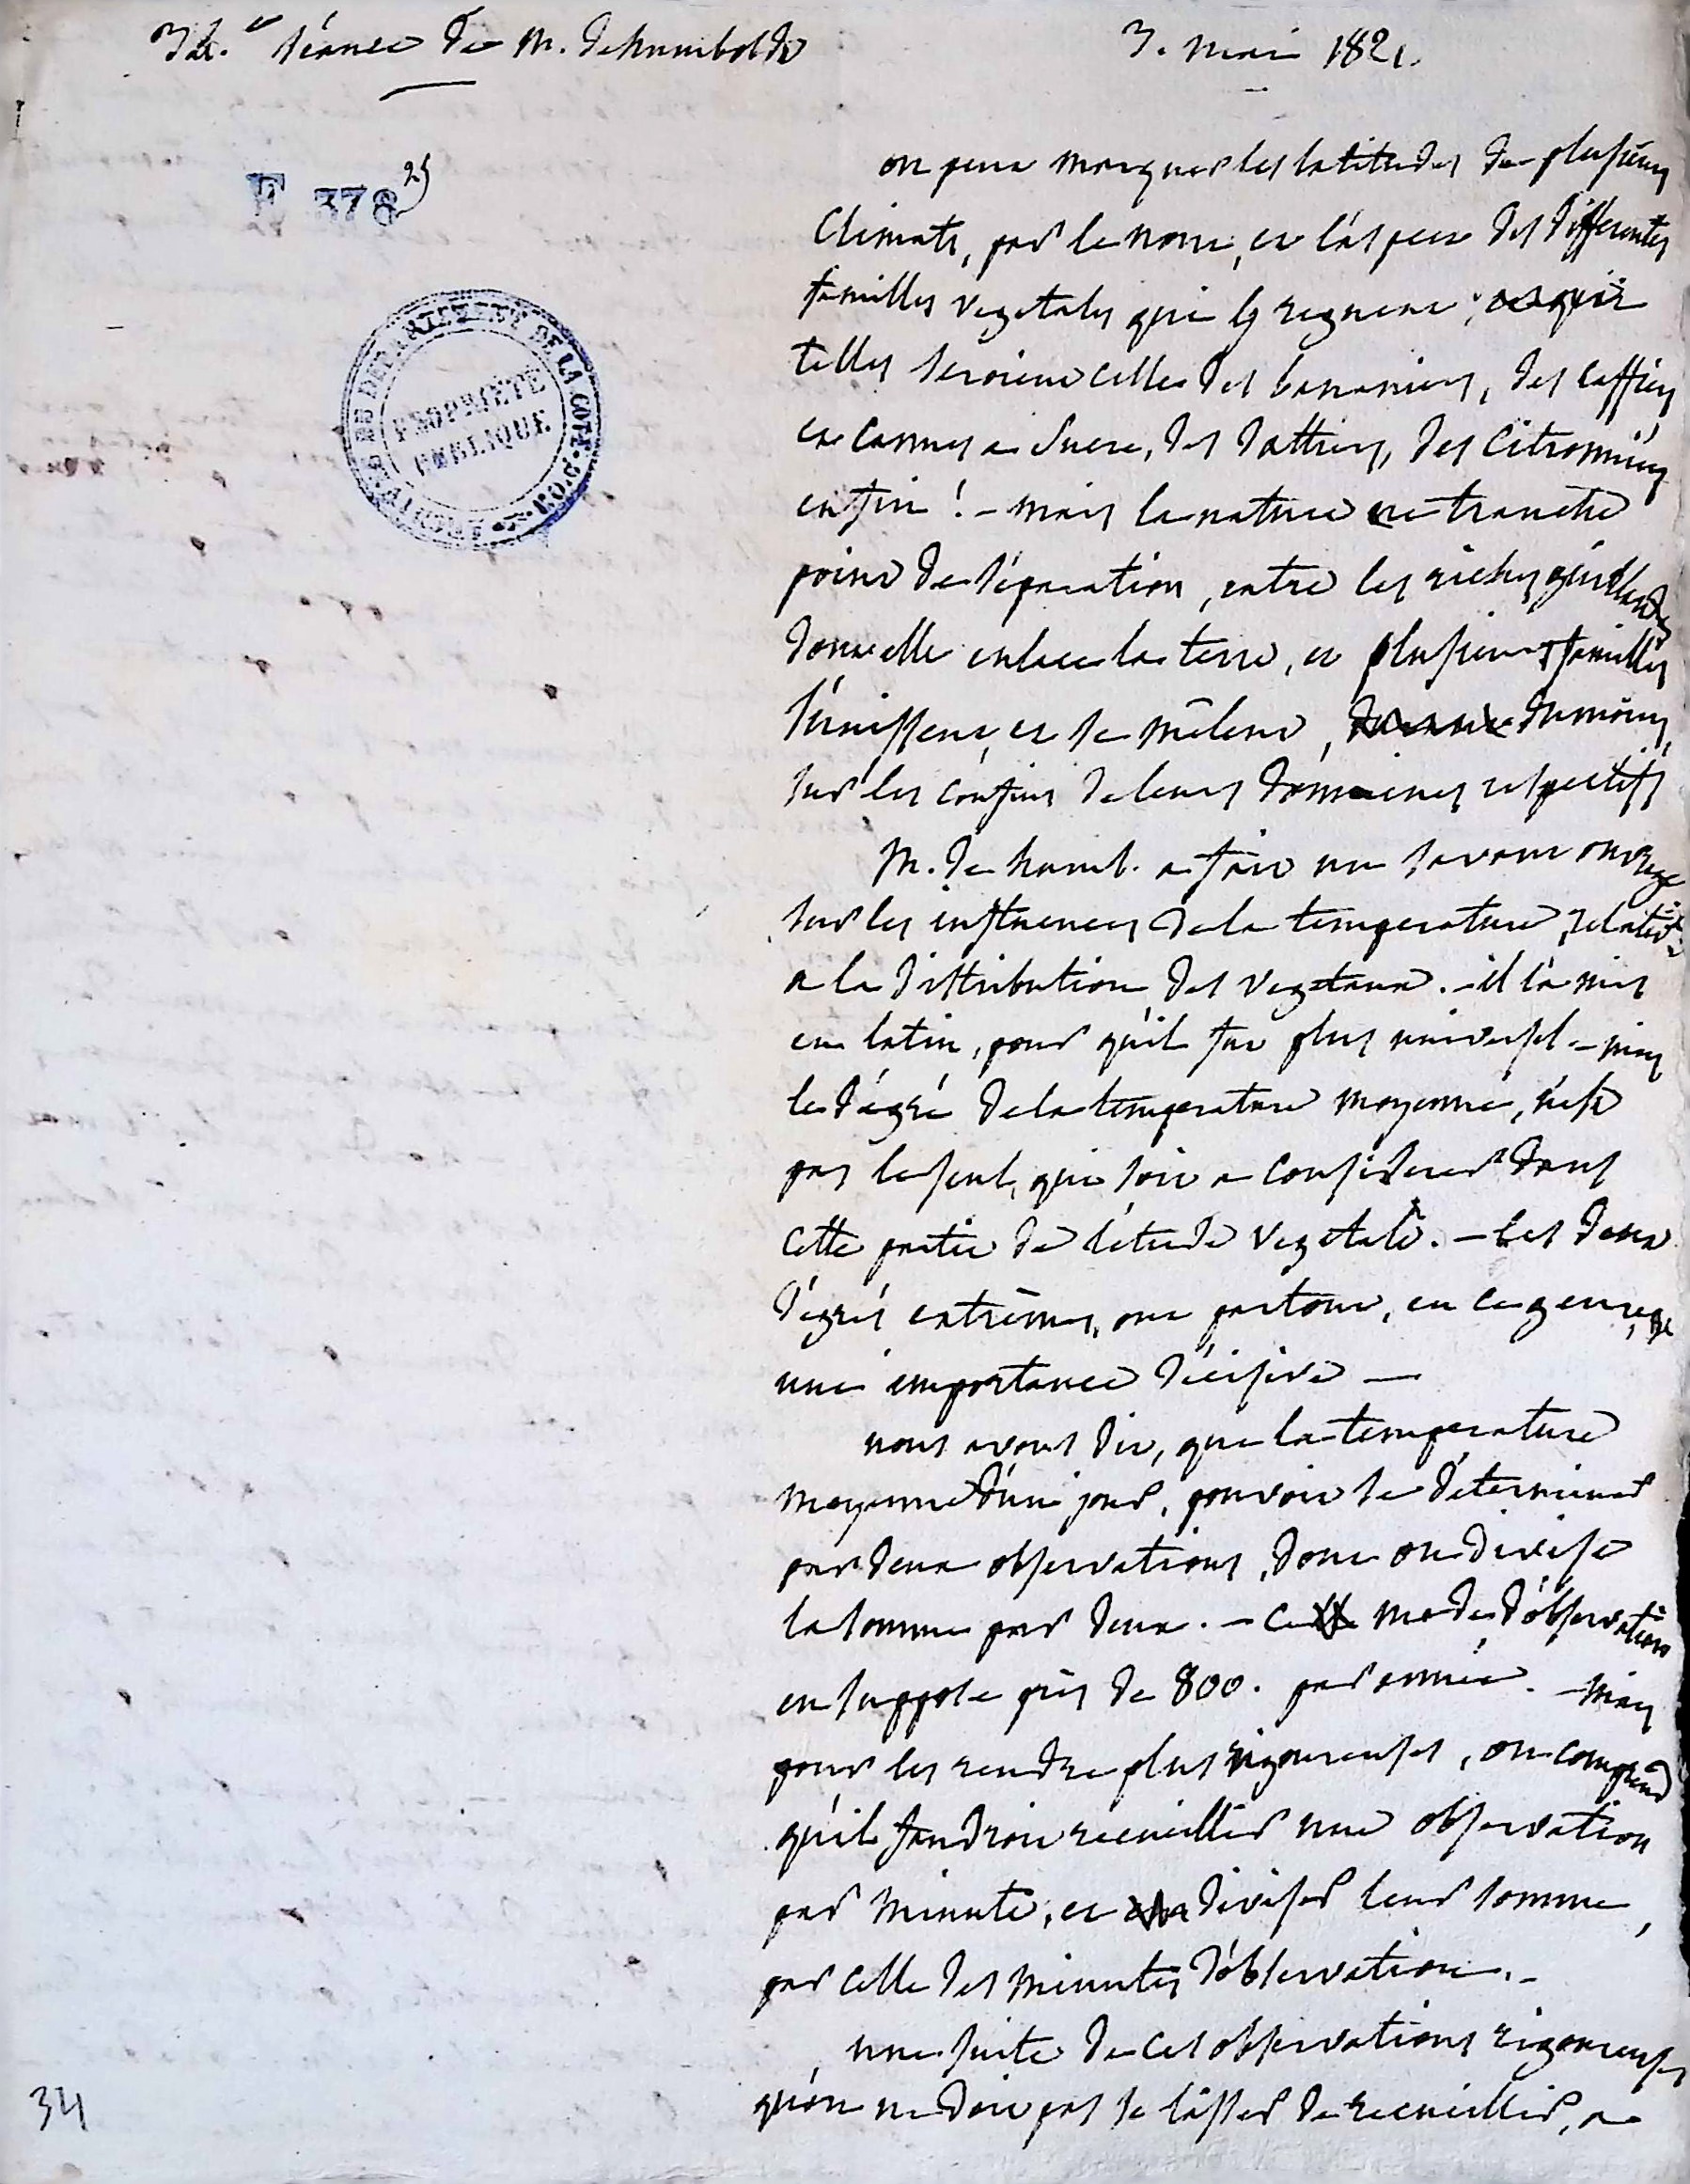 séance de M. de humboldt
3. mai 1821.
E 378 25
ARCHIVES DU DEPARTEMENT DE LA COTE-D'OR
PROPRIÉTÉ
PUBLIQUE
on peut marquer les latitudes de plusieurs
climats, par le nom, et l'aspect des differentes
familles vegetales qui y regnent;
telles seroient celles des bananiers, des caffiers
et cannes a sucre, des dattiers, des citronniers
enfin ! - mais la nature ne tranche
point de séparation, entre les riches guirlandes
dont elle enlace la terre, et plusieurs familles
s'unissent, et se mêlent, du moins,
sur les confins de leurs domaines respectifs
M. de humb. a fait un savant ouvrage
sur les influences de la temperature, relativt
a la distribution des vegetaux. - il l'a mis
en latin, pour qu'il fut plus universel. - mais
le dégré de la temperature moyenne, n'est
pas le seul, qui soit a considerer dans
cette partie de l'etude vegetale. - les deux
dégrés extrêmes, ont partout, en ce genre,
une importance décisive -
nous avons dit, que la temperature
moyenne d'un jour, pouvoit se déterminer
par deux observations, dont on divise
la somme par deux. - ce mode d'observation
en suppose près de 800. par année. - mais
pour les rendre plus rigoureuses, on comprend
qu'il faudroit recueillir une observation
par minute, et diviser leur somme,
par celle des minutes d'observation. -
une suite de ces observations rigoureuses
qu'on ne doit pas se lasser de recueillir, a
34